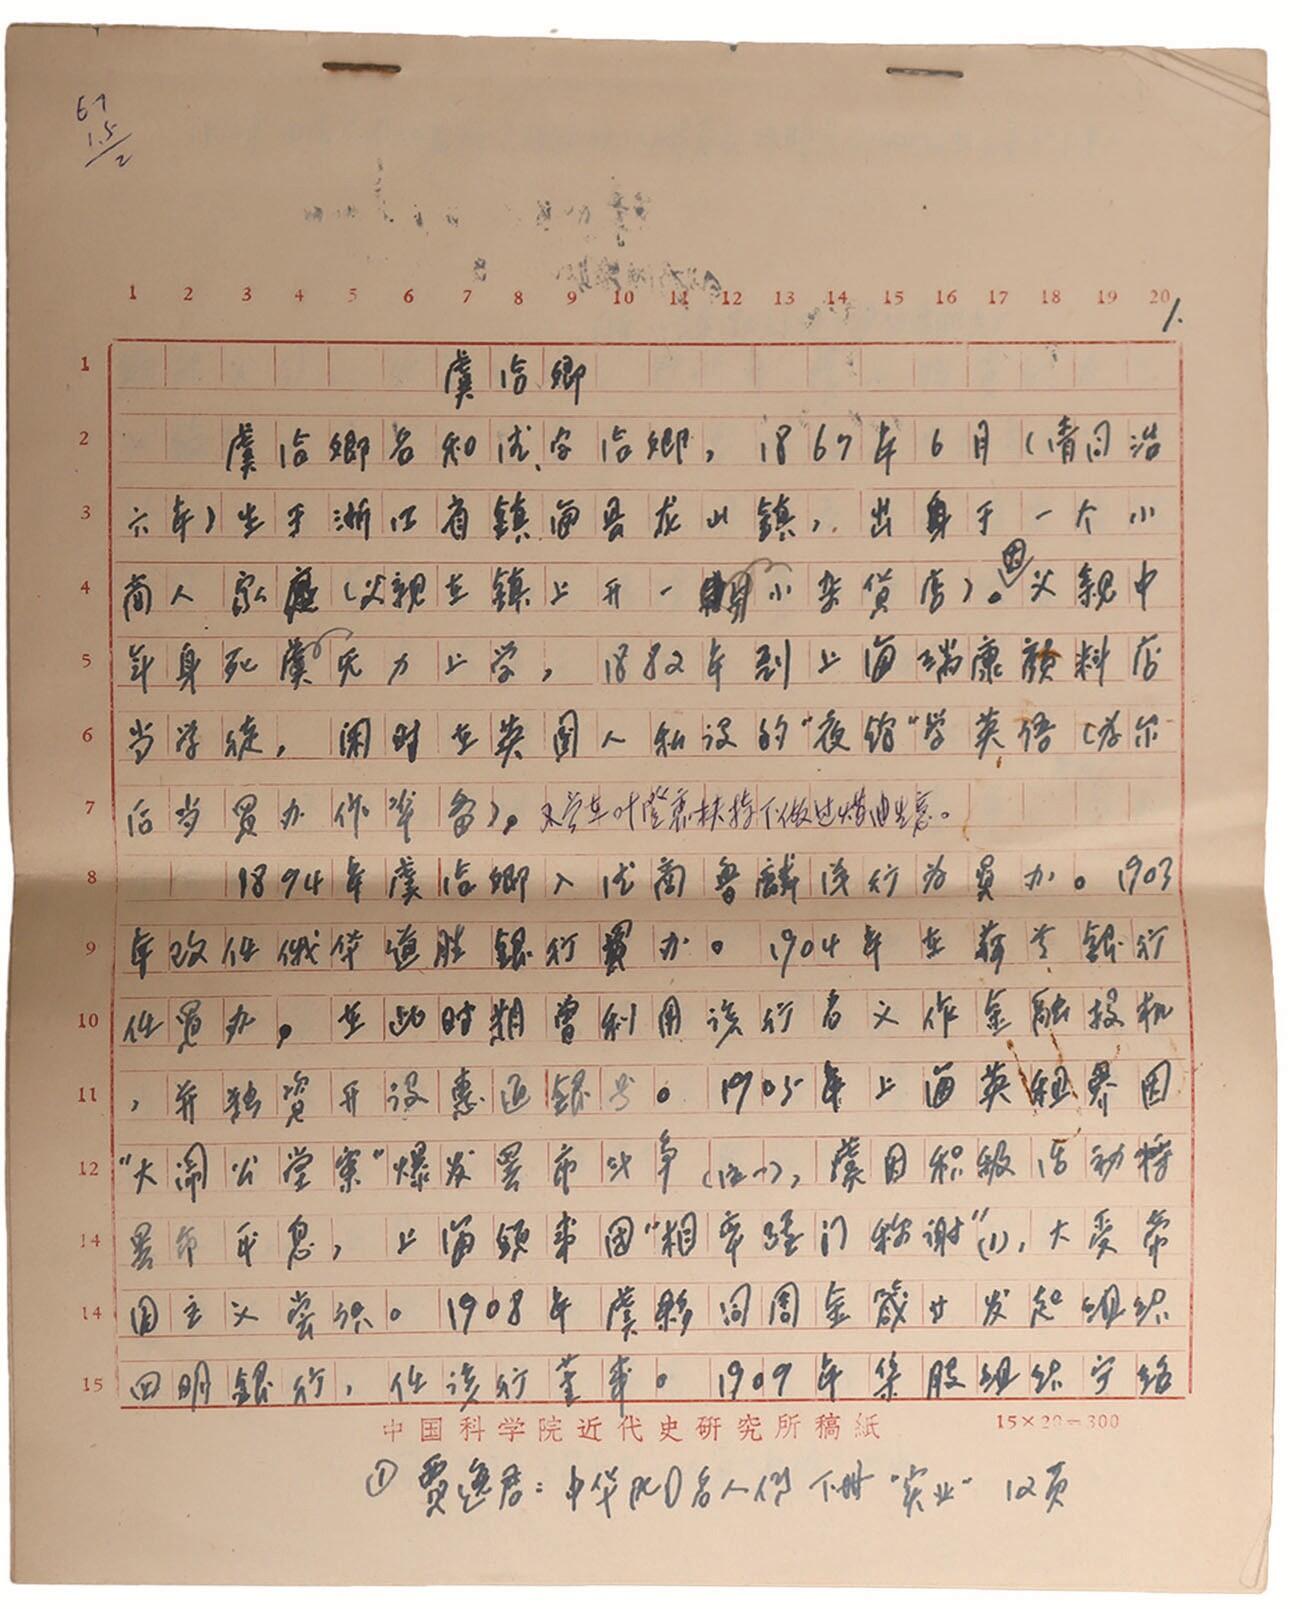 67
1.5/2
1 2 3 4 5 6 7 8 9 10 11 12 13 14 15 16 17 18 19 20
1.
1 虞洽卿
2 虞洽卿名和德,字洽卿,1867年6月(清同治
3 六年)生于浙江省鎮海县龙山鎮,出身于一个小
4 商人家庭(父親在鎮上开一小杂貨店)。因父親中
5 年身死虞无力上学,1882年到上海瑞康颜料店
6 当学徒,闲时在英国人私设的"夜馆"学英语(为尔
7 后当買办作準备)。又曾在叶澄衷扶持下做过煤油生意。
8 1894年虞洽卿入德商鲁麟洋行为買办。1903
9 年改任俄华道胜銀行買办。1904年在荷兰銀行
10 任買办。在此时期曾利用该行名义作金融投机
11 ,并独資开设惠通銀号。1905年上海英租界因
12 "大闹公堂案"爆发罢市战争(注一),虞因积极活动将
14 罢市平息,上海领事团"相率踵门称谢"(1),大受帝
14 国主义尝识。1908年虞夥同周金箴等发起组织
15 四明銀行,任该行董事。1909年集股组织宁绍
中国科学院近代史研究所稿紙 15×20=300
① 贾逸君:中华民国名人传 下册"实业" 12页